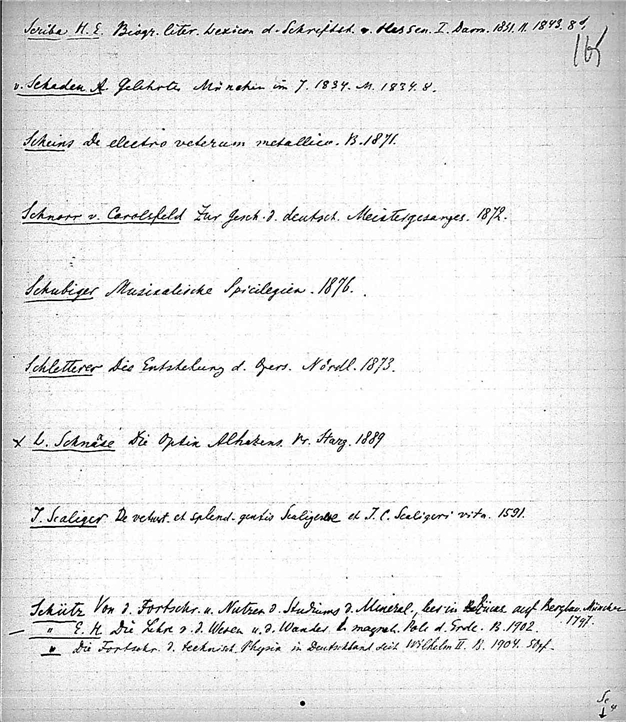 Scriba H. E. Biogr. liter. Lexicon d. Schriftst. v. Hessen. I. Darm. 1831. II. 1843. 8°.
165
v. Schaden A. Gelehrtes München im J. 1834. M. 1834. 8.
Scheins De electro veterum metallico. B. 1871.
Schnorr v. Carolsfeld Zur Gesch. d. deutsch. Meistergesanges. 1872.
Schubiger Musicalische Spicilegien. 1876.
Schletterer Die Entstehung d. Opers. Nördl. 1873.
x L. Schnäse Die Optik Alhazens. Pr. Starg. 1889
J. Scaliger De vetust. et splend. gentis Scaligerae et J. C. Scaligeri vita. 1591.
Schütz Von d. Fortschr. u. Nutzen d. Studiums d. Mineral., bes. in auf Bergbau. München
1797.
— " E. H. Die Lehre v. d. Wesen u. d. Wander. d. magnet. Pole d. Erde. B. 1902.
" Die Fortschr. d. technisch. Physik in Deutschland seit Wilhelm II. B. 1904.
Sc